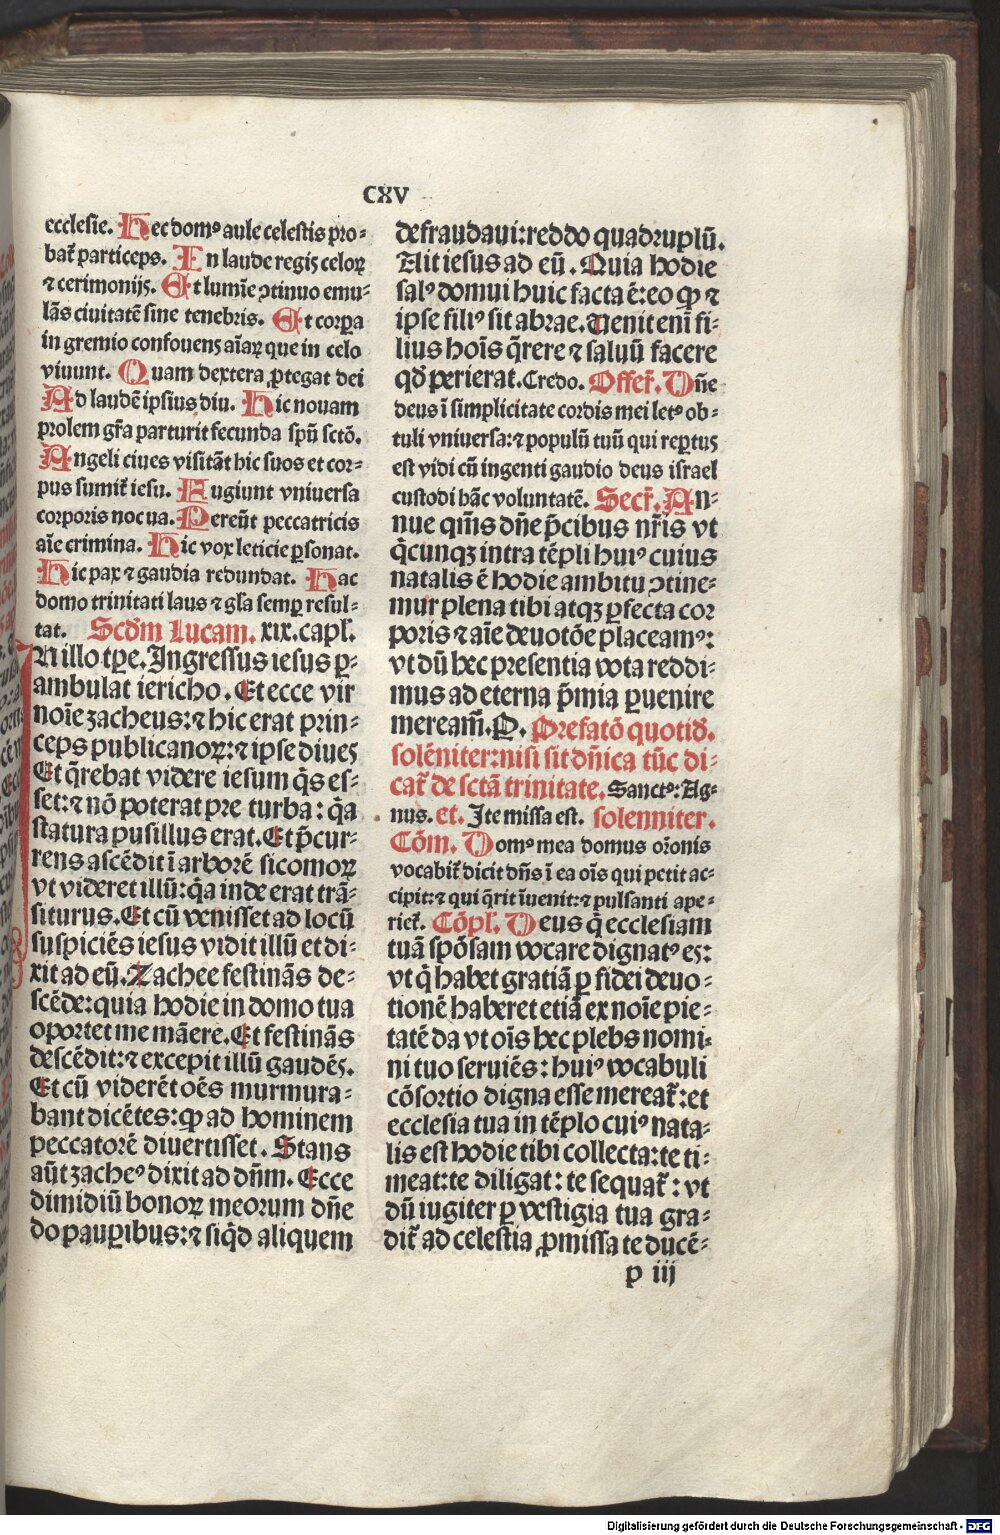 CXV
ecclesie. Hec domꝰ aule celestis pro⸗
bat̃ particeps. In laude regis celoꝝ
⁊ cerimonijs. Et lumĩe ꝯtinuo emu⸗
lãs ciuitatẽ sine tenebris. Et corꝑa
in gremio confouens aĩaꝝ que in celo
viuunt. Quam dextera ꝓtegat dei
Ad laudẽ ipsius diu. Hic nouam
prolem gr̃a parturit fecunda spũ sctõ.
Angeli ciues visitãt hic suos et cor⸗
pus sumit̃ iesu. Fugiunt vniuersa
corporis nocua. Pereũt peccatricis
aĩe crimina. Hic vox leticie ꝑsonat.
Hic pax ⁊ gaudia redundat. Hac
domo trinitati laus ⁊ gl̃a semꝑ resul⸗
tat. Scd̃m Lucam. xix. capl̃.
IN illo tꝑe. Ingressus iesus ꝑ⸗
ambulat iericho. Et ecce vir
noĩe zacheus: ⁊ hic erat prin⸗
ceps publicanoꝝ: ⁊ ipse diues
Et q̃rebat videre iesum q̃s es⸗
set: ⁊ nõ poterat pre turba: q̃a
statura pusillus erat. Et p̃cur⸗
rens ascẽdit ĩ arborẽ sicomoꝝ
vt videret illũ: q̃a inde erat trã⸗
siturus. Et cũ venisset ad locũ
suspiciẽs iesus vidit illũ et di⸗
xit ad eũ. Zachee festinãs de⸗
scẽde: quia hodie in domo tua
oportet me mãere. Et festinãs
descẽdit: ⁊ excepit illũ gaudẽs.
Et cũ viderẽt oẽs murmura⸗
bant dicẽtes: ꝙ ad hominem
peccatorẽ diuertisset. Stans
aũt zacheꝰ dixit ad dñm. Ecce
dimidiũ bonoꝝ meorum dñe
do pauꝑibus: ⁊ siq̃d aliquem
defraudaui: reddo quadruplũ.
Ait iesus ad eũ. Quia hodie
salꝰ domui huic facta ẽ: eo ꝙ ⁊
ipse filiꝰ sit abrae. Uenit enĩ fi⸗
lius hoĩs q̃rere ⁊ saluũ facere
qd̃ perierat. Credo. Offer̃. Dñe
deus ĩ simplicitate cordis mei letꝰ ob⸗
tuli vniuersa: ⁊ populũ tuũ qui reꝑtus
est vidi cũ ingenti gaudio deus israel
custodi hãc voluntatẽ. Secr̃. An⸗
nue qm̃s dñe p̃cibus nr̃is vt
q̃cunqꝫ intra tẽpli huiꝰ cuius
natalis ẽ hodie ambitu ꝯtine⸗
mur plena tibi atqꝫ ꝑfecta cor
poris ⁊ aĩe deuotõe placeamꝰ:
vt dũ hec presentia vota reddi⸗
mus ad eterna p̃mia ꝑuenire
meream̃. P. Prefatõ quotid̃.
solẽniter: nisi sit dñica tũc di⸗
cat̃ de sctã trinitate. Sanctꝰ: Ag⸗
nus. et. Ite missa est. solenniter.
Cõm. Domꝰ mea domus or̃onis
vocabit̃ dicit dñs ĩ ea oĩs qui petit ac⸗
cipit: ⁊ qui q̃rit ĩuenit: ⁊ pulsanti aꝑe⸗
riet̃. Cõpl̃. Deus q̃ ecclesiam
tuã spõsam vocare dignatꝰ es:
vt q̃ habet gratiã ꝑ fidei deuo⸗
tionẽ haberet etiã ex noĩe pie⸗
tatẽ da vt oĩs hec plebs nomi⸗
ni tuo seruiẽs: huiꝰ vocabuli
cõsortio digna esse mereat̃: et
ecclesia tua in tẽplo cuiꝰ nata⸗
lis est hodie tibi collecta: te ti⸗
meat: te diligat: te sequat̃: vt
dũ iugiter ꝑ vestigia tua gra⸗
dit̃ ad celestia ꝓmissa te ducẽ⸗
p iij
Digitalisierung gefördert durch die Deutsche Forschungsgemeinschaft - DFG